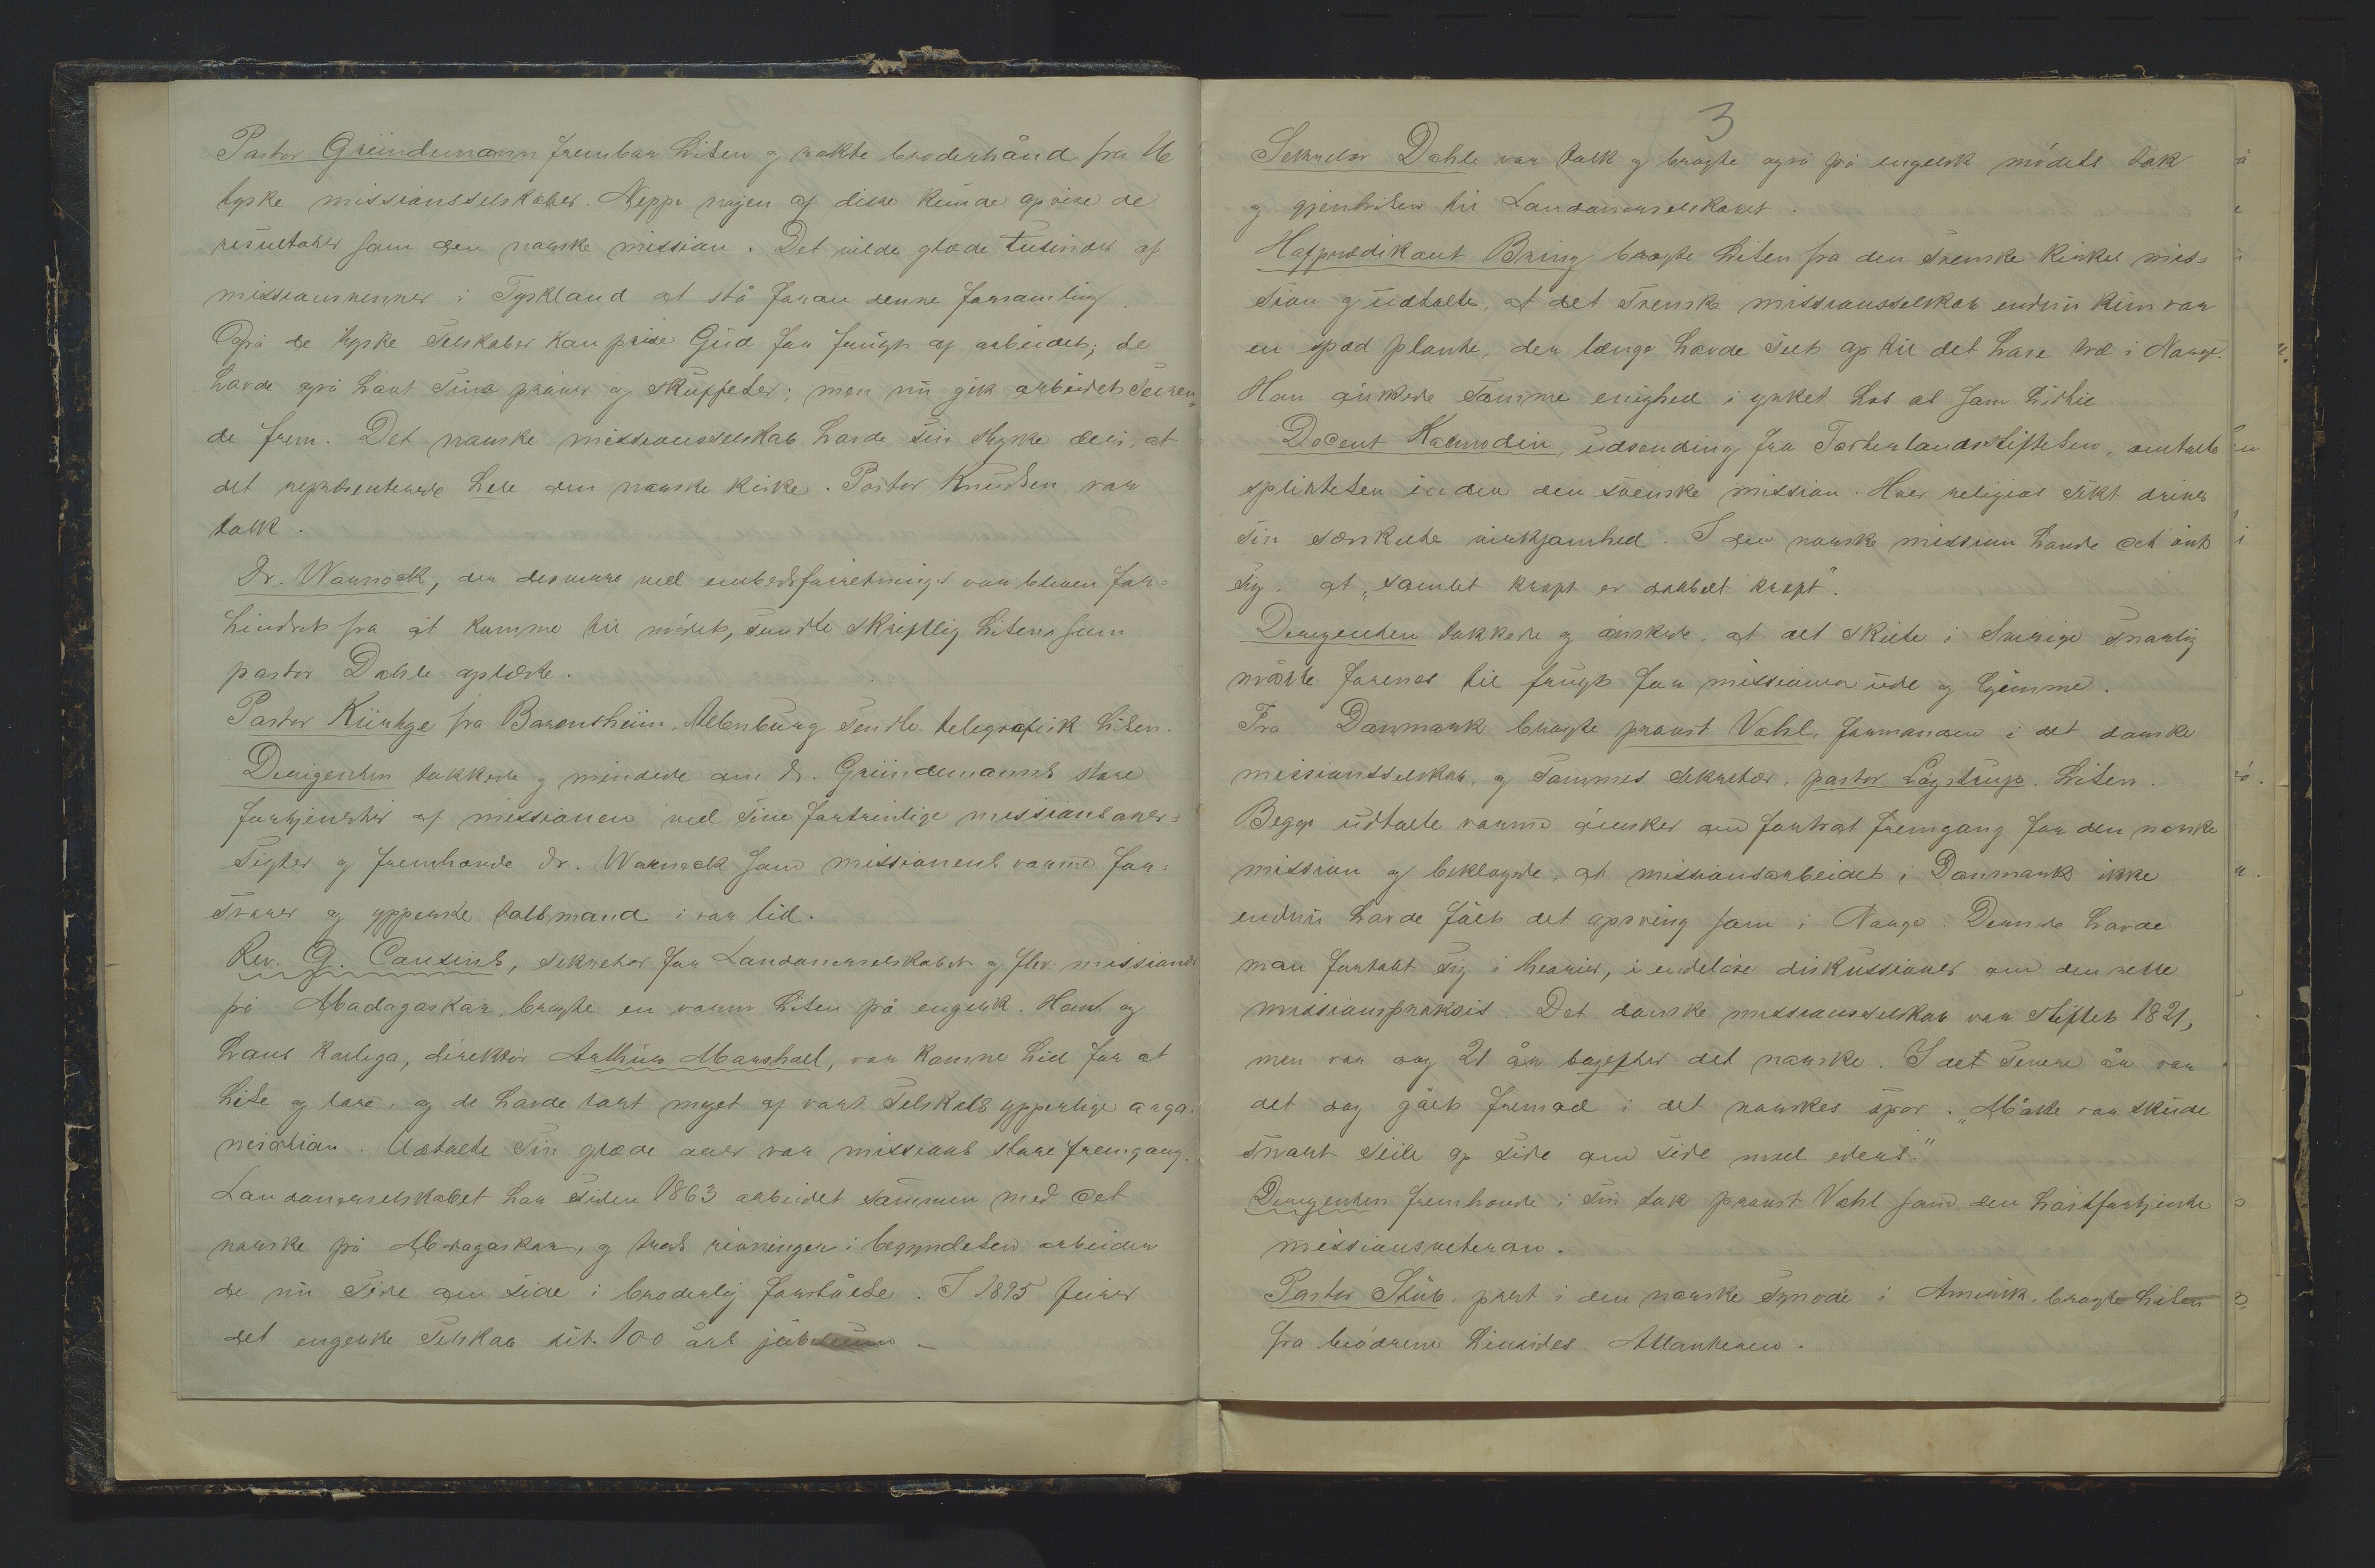 Pastor Gründemann frembar hilsen og rakte broderhånd fra 16
tyske missionsselskaber. Neppe nogen af disse kunde opvise de
resultater som den norske mission. Det vilde glæde tusinder af
missionsvenner i Tyskland at stå foran denne forsamling.
Også de tyske selskaber kan prise Gud for frugt af arbeidet; de
havde også havt sine prøver og skuffelser; men nu gik arbeidet seiren„
de frem. Det norske missionsselskab havde sin styrke deri, at
det repræsenterede hele den norske kirke. Pastor Knudsen var
tolk.
Dr. Warneck, der desværre ved embedsforretninger var bleven for=
hindret fra at komme til mödet, sendte skriftlig hilsen, som
pastor Dahle oplæste.
Pastor Küntze fra Altenburg sendte telegrafisk hilsen.
Dirigenten takkede og mindede om Dr. Gründemanns store
fortjenester af missionen ved sine fortrinlige missionsover=
sigter og fremhævde Dr. Warneck som missionens varme for=
svarer og ypperste talsmand i vor tid.
Rev. G. Cousins, sekretær for Londonerselskabet og fhv. missionær
på Madagaskar, bragte en varm hilsen på engelsk. Han og
hans kollega, direktör Arthur Marshall, var komne hid for at
hilse og lære, og de havde lært meget af vort selskabs ypperlige orga„
nisation. Udtalte sin glæde over vor missions store fremgang.
Londonerselskabet har siden 1863 arbeidet sammen med det
norske på Madagaskar, og trods rivninger i begyndelsen arbeider
de nu side om side i broderlig forståelse. I 1895 feirer
det engelske selskab sit 100 års jubilæum –
3
Sekretær Dahle var tolk og bragte også på engelsk mödets tak
og gjenhilsen til Londonerselskabet.
Hofprædikant Bring bragte hilsen fra den svenske kirkes mis=
sion og udtalte, at det svenske missionsselskab endnu kun var
en spæd plante, der længe havde seet op til det høie træ i Norge.
Han önskede samme enighed i yrket hos os som hidtil.
Docent Kolmodin, udsending fra Fosterlandsstiftelsen, omtalte
splittelsen inden den svenske mission. Hver religiøs sekt driver
sin særskilte virksomhed. I den norske mission havde det vist
sig, at „samlet kraft er dobbelt kraft".
Dirigenten takkede og önskede, at det skilte i Sverige snarlig
måtte forenes til frugt for missionen ude og hjemme.
Fra Danmark bragte provst Vahl, formanden i det danske
missionsselskab, og sammes sekretær, pastor Lögstrup, hilsen.
Begge udtalte varme önsker om fortsat fremgang for den norske
mission og beklagede, at missionsarbeidet i Danmark ikke
endnu havde fået det opsving som i Norge. Dernede havde
man fortabt sig i teorier, i endelöse diskussioner om den rette
missionspraksis. Det danske missionsselskab var stiftet 1821,
men var dog 21 år bagefter det norske. I det senere år var
det dog gået fremad i det norskes spor. „Måtte vor skude
snart seile op side om side med eders."
Dirigenten fremhævde i sin tak provst Vahl som den höitfortjente
missionsveteran.
Pastor Stub, prest i den norske synode i Amerik., bragte hilsen
fra brödrene hinsides Atlanteren.